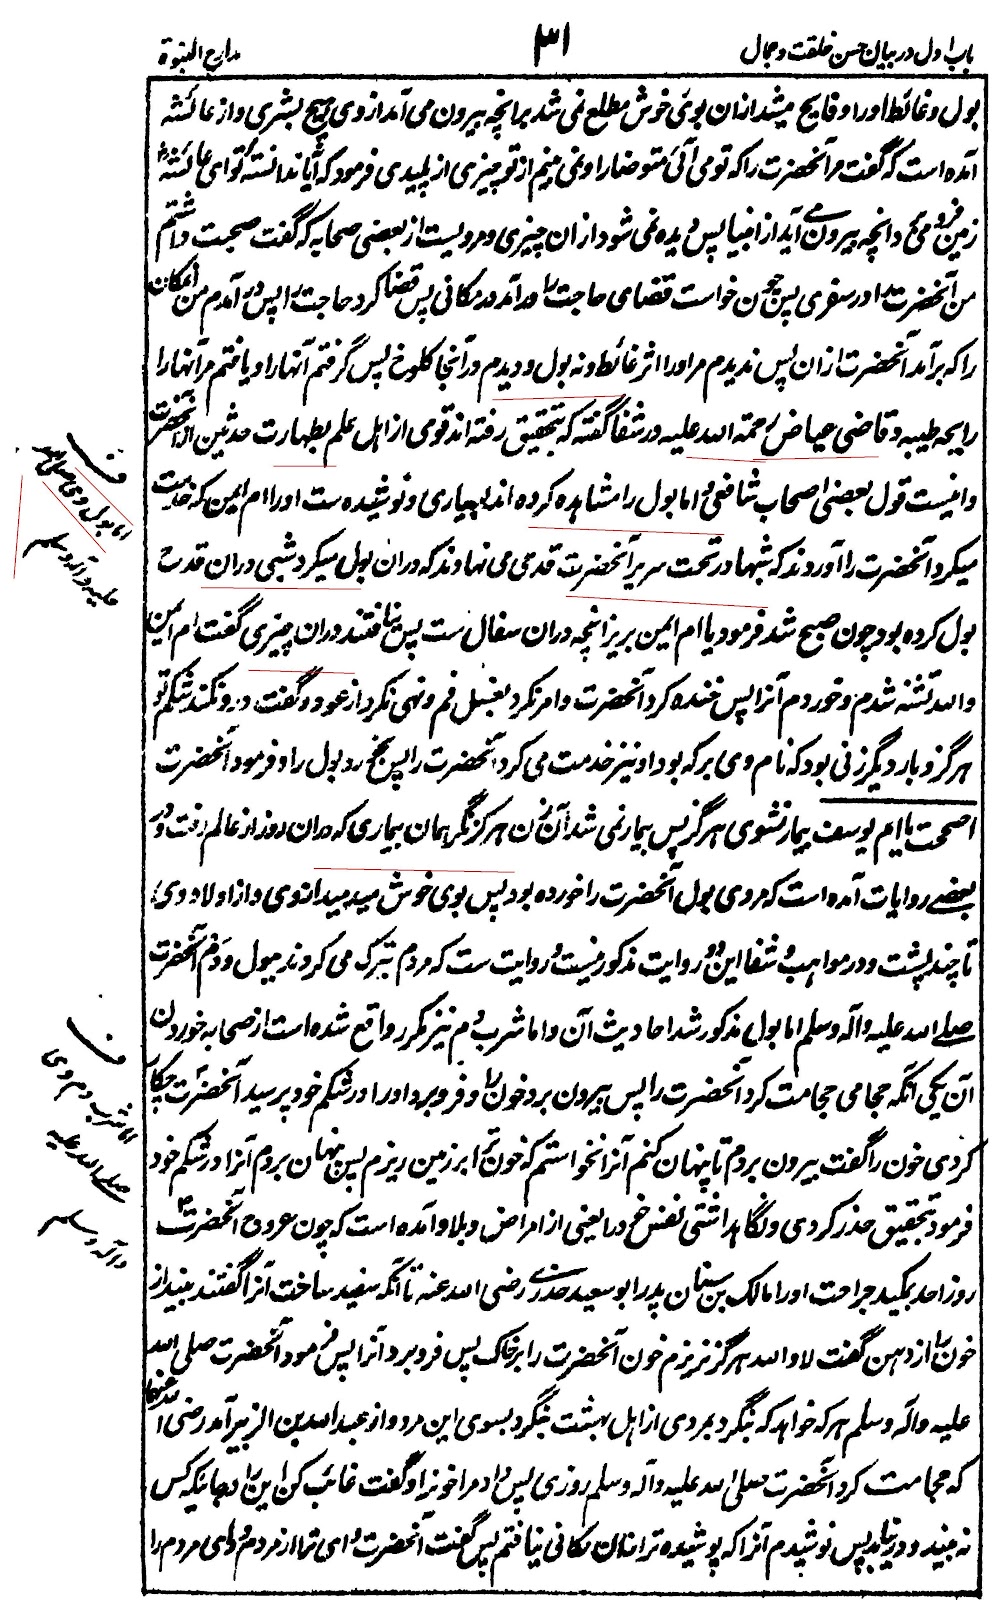 باب اول در بیان حسن خلقت و جمال
۳۱
مدارج النبوة
بول و غائط او را و فایح میشد ازان بوئ خوش مطلع نمی شد برانچه بیرون می آمد از وی هیچ بشری و از عائشه
آمده است که گفت مر آنحضرت را که تو می آئی متوضا را و نمی بینم از تو چیزی از پلیدی فرمود که آیا ندانستۀ تو ای عائشه که
زمین فرو می برد انچه بیرون می آید از انبیا پس دیده نمی شود ازان چیزی و مرویست از بعضی صحابه که گفت صحبت داشتم
من آنحضرت را در سفری پس چون خواست قضای حاجت را در آمد در مکانی پس قضا کرد حاجت را پس در آمدم من آن مکان
را که برآمد آنحضرت ازان پس ندیدم مر او را اثر غائط و نه بول و دیدم در آنجا کلوخ پس گرفتم آنها را و یافتم مر آنها را
رایحه طیبه و قاضی عیاض رحمة الله علیه در شفا گفته که بتحقیق رفته اند قومی از اهل علم بطهارت حدثین از آنحضرت
و اینست قول بعضی اصحاب شافعی و اما بول را مشاهده کرده اند بسیاری و نوشیده ست او را ام ایمن که خدمت
میکرد آنحضرت را آورده اند که شبها در تحت سریر آنحضرت قدحی می نهادند که دران بول میکرد شبی دران قدح
بول کرده بود چون صبح شد فرمود یا ام ایمن بریز انچه دران سفال ست پس نیافتند دران چیزی گفت ام ایمن
والله تشنه شدم و خوردم آنرا پس خنده کرد آنحضرت و امر نکرد بغسل فم و نهی نکرد از عود و گفت درد نکند شکم تو
هرگز و بار دیگر زنی بود که نام وی برکه بود او نیز خدمت می کرد آنحضرت را پس بخورد بول را و فرمود آنحضرت
صحت یا ام یوسف بیمار نشوی هرگز پس بیمار نمی شد آن زن هرگز مگر همان بیماری که دران روز از عالم رفت و در
بعضے روایات آمده است که مردی بول آنحضرت را خورده بود پس بوی خوش میدمید از وی و از اولاد وی
تا چند پشت و در مواهب و شفا این دو روایت مذکور نیست و روایت ست که مردم تبرک می کردند ببول و دم آنحضرت
صلے الله علیه وآله وسلم اما بول مذکور شد احادیث آن و اما شرب دم نیز مکرر واقع شده است از صحابه خوردن
آن یکی آنکه حجامی حجامت کرد آنحضرت را پس بیرون برد خون را و فرو برد او را در شکم خود پرسید آنحضرت چکار
کردی خون را گفت بیرون بردم تا پنهان کنم آنرا نخواستم که خون ترا بر زمین ریزم پس پنهان بردم آنرا در شکم خود
فرمود بتحقیق حذر کردی و نگاهداشتی نفس خود را یعنی از امراض و بلا و آمده است که چون مجروح آنحضرت
روز احد بمکید جراحت او را مالک بن سنان پدر ابو سعید خدری رضی الله عنه تا آنکه سفید ساخت آنرا گفتند بینداز
خون را از دهن گفت لا والله هرگز نریزم خون آنحضرت را بر خاک پس فرو برد آنرا پس فرمود آنحضرت صلی الله
علیه وآله وسلم هر که خواهد که بنگرد بمردی از اهل بهشت بنگرد بسوی این مرد و از عبدالله بن الزبیر آمد رضی الله عنهما
که حجامت کرد آنحضرت صلی الله علیه وآله وسلم روزی پس داد مرا خون را و گفت غائب کن این را در جائیکه کس
نه بیند و در نیابد پس نوشیدم آنرا که پوشیده تر ازان مکانی نیافتم پس گفت آنحضرت وای ترا از مردم و وای مردم را
ف
اما بول وی صلی الله
علیه وآله وسلم
ف
اما شرب دم وی
صلے الله علیه
وآله وسلم